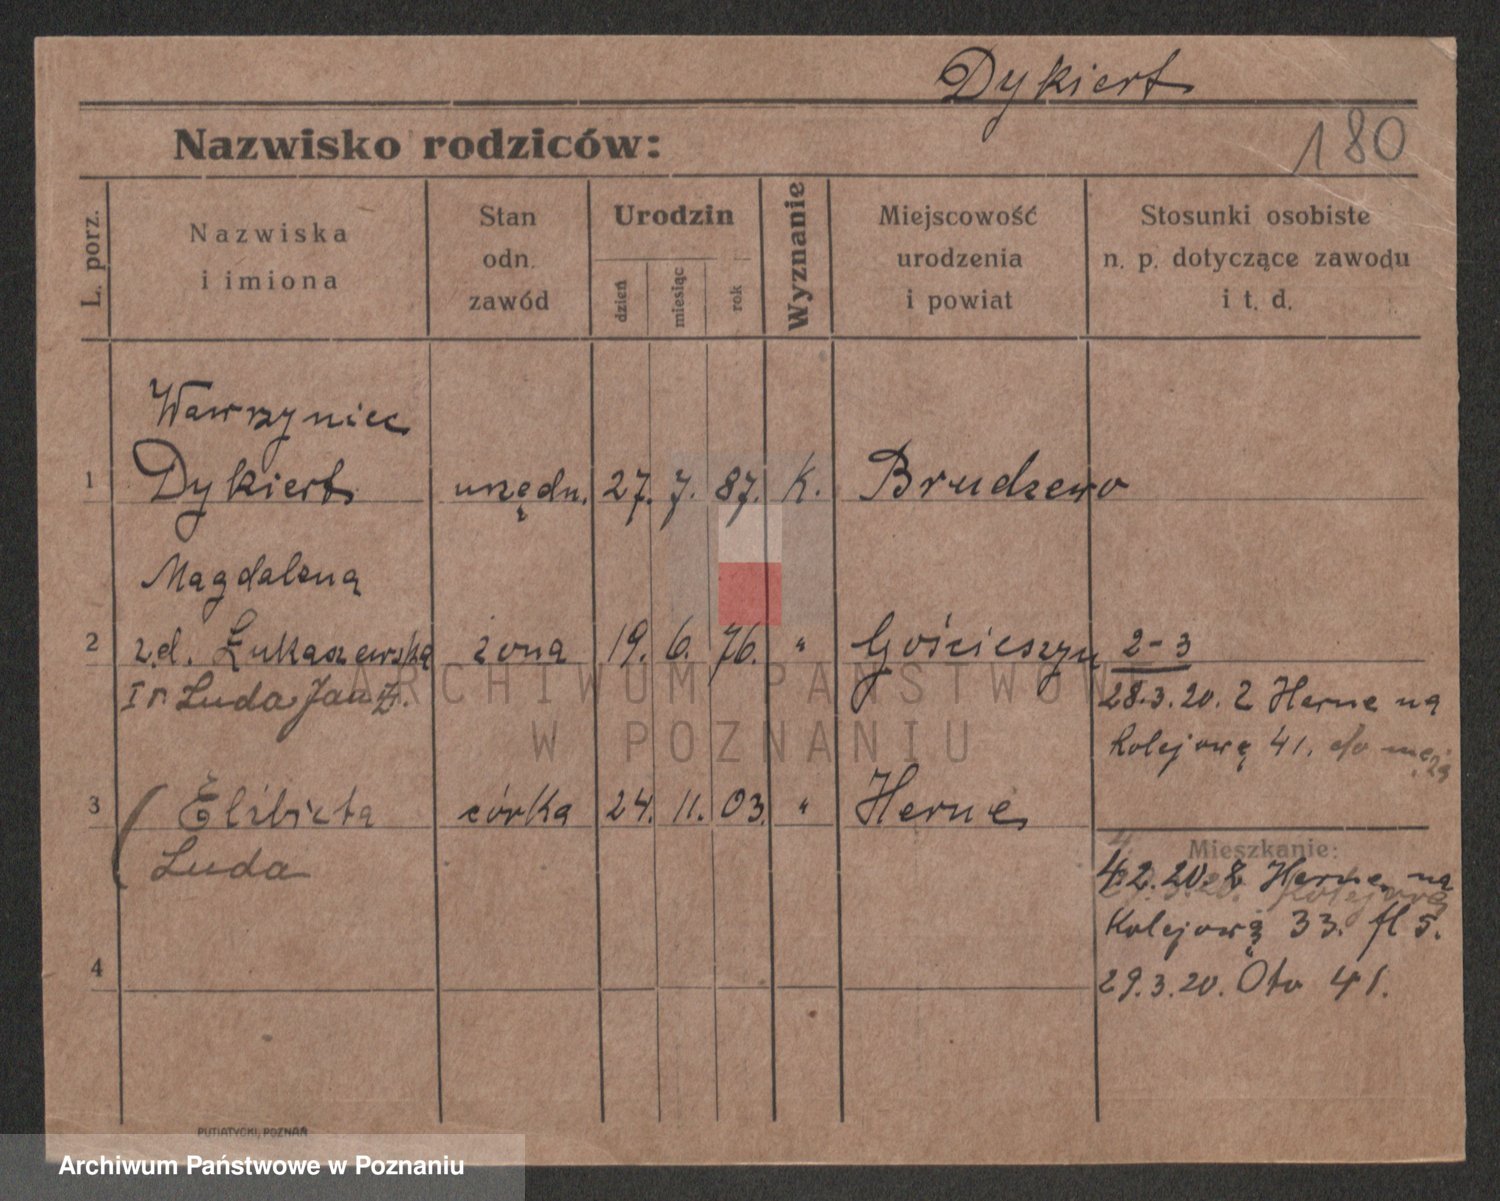 Dykiert
180
Nazwisko rodziców:
L. porz.
Nazwiska
i imiona
Stan
odn.
zawód
Urodzin
dzień
miesiąc
rok
Wyznanie
Miejscowość
urodzenia
i powiat
Stosunki osobiste
n. p. dotyczące zawodu
i t. d.
Wawrzyniec
1 Dykiert urzędn. 27. 7. 87. K. Brudzewo
Magdalena
2 z.d. Łukaszewska żona 19. 6. 76. " Gościeszyn 2-3
I r. Luda Jan Z.
28.3.20. Z Herne na
Kolejową 41. do męża
3 Elżbieta córka 24. 11. 03. " Herne
Luda
Mieszkanie:
4.2.20. Z Herne na
Kolejową 33. fl 5.
29.3.20. Oto 41.
4
PUTIATYCKI, POZNAŃ
ARCHIWUM PAŃSTWOWE
W POZNANIU
Archiwum Państwowe w Poznaniu